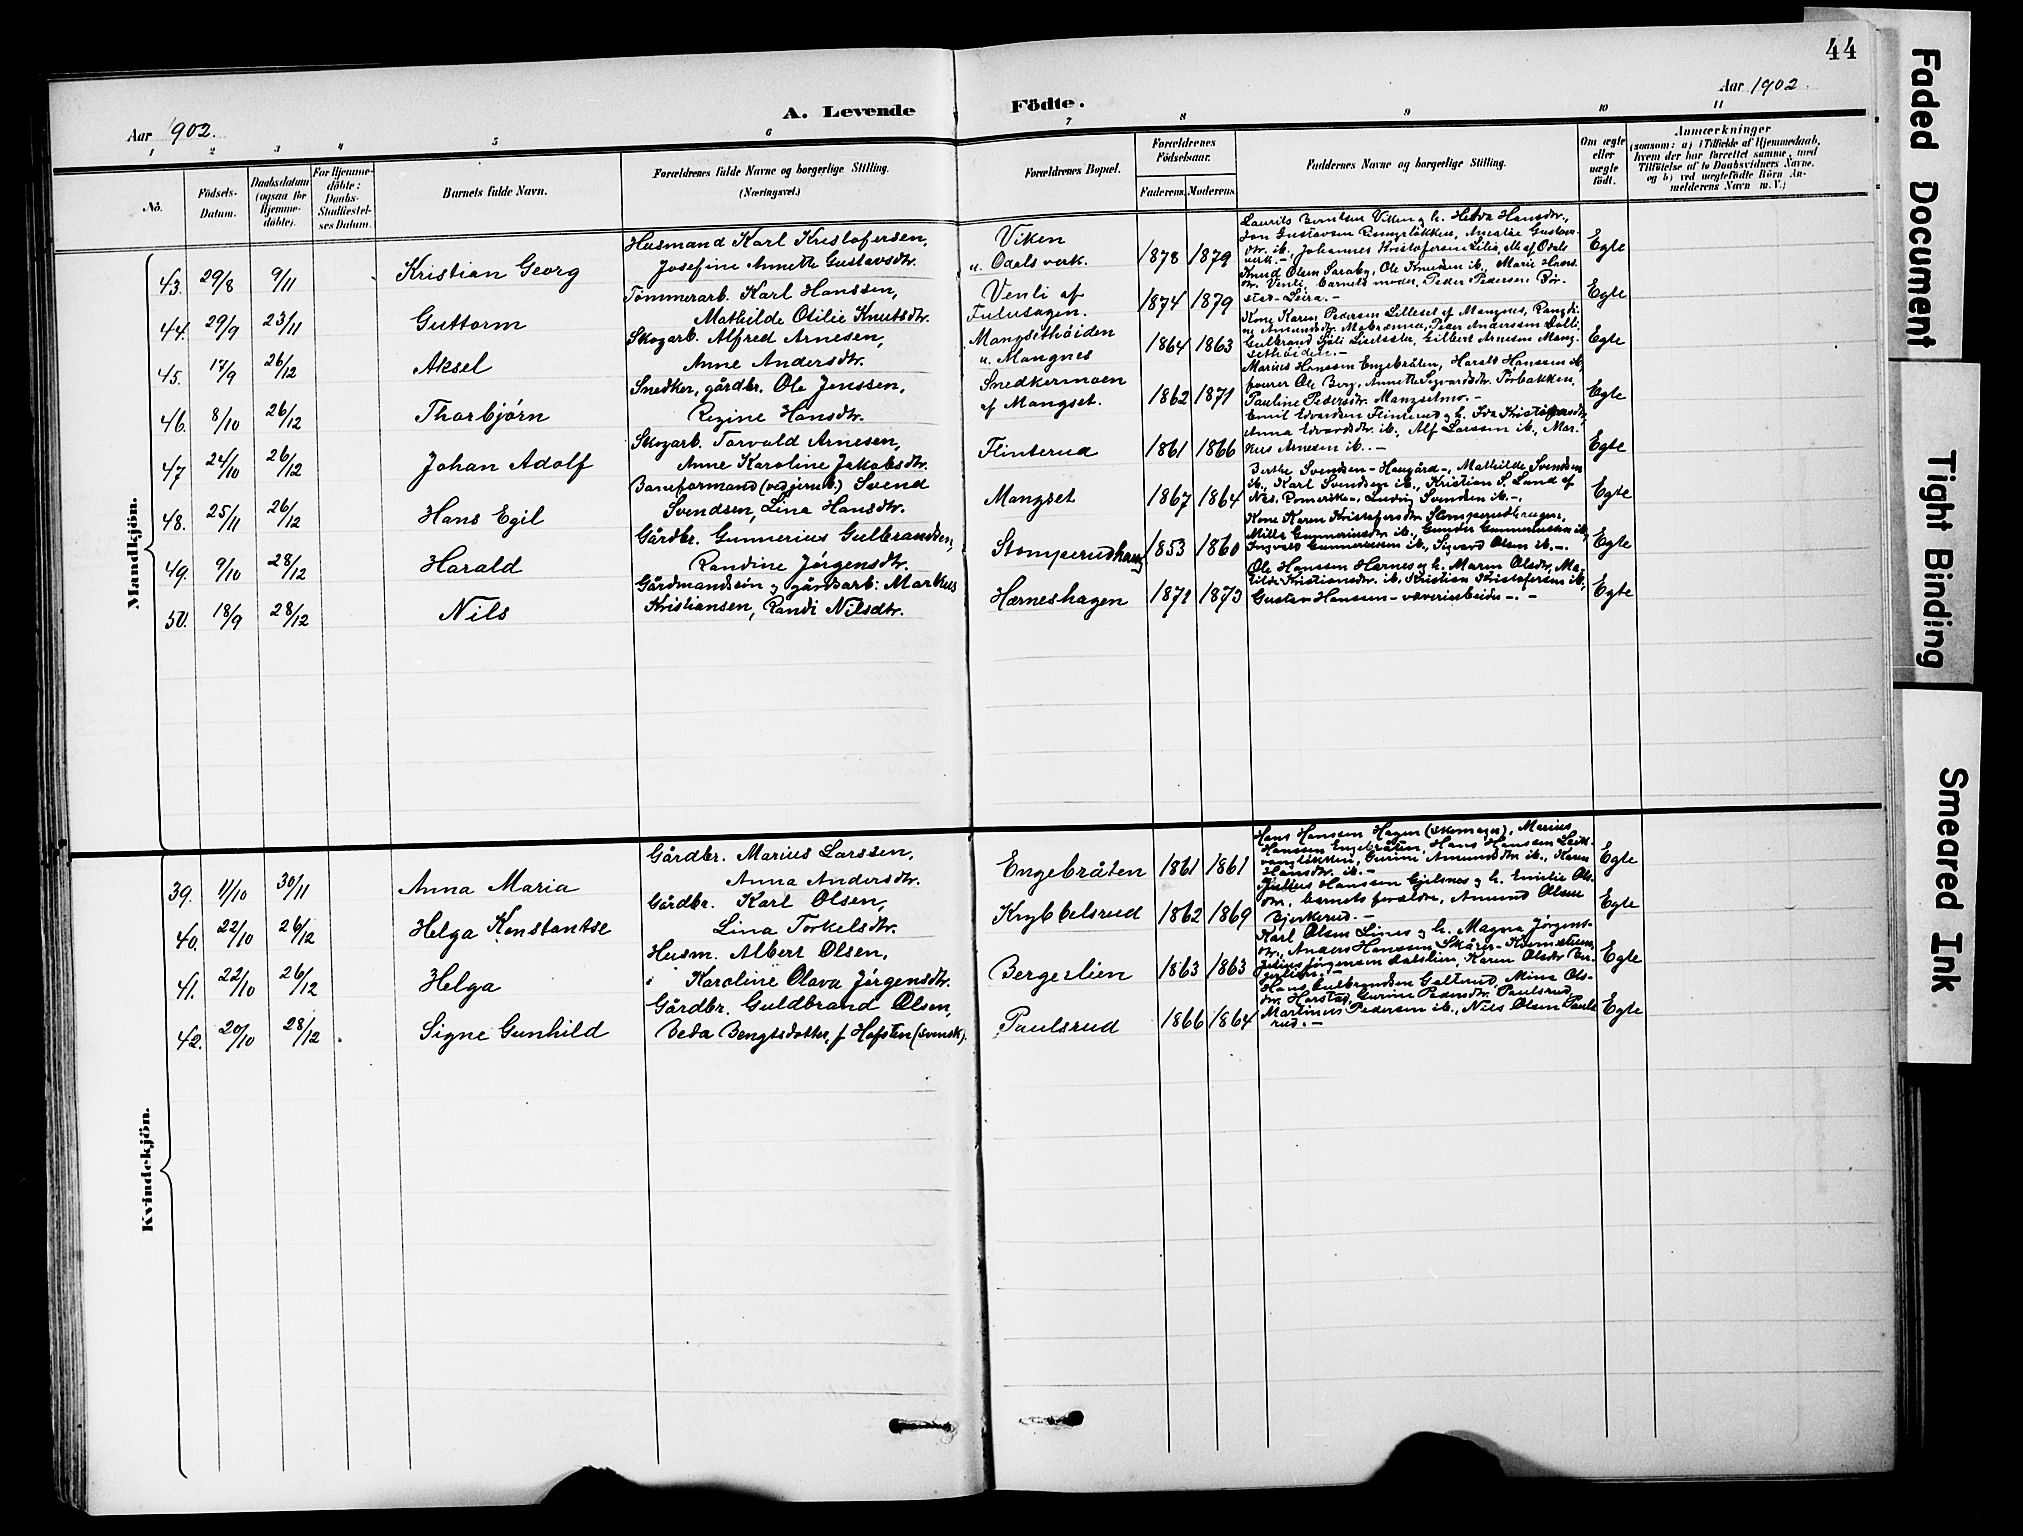 44
Aar 1902.
A. Levende
Födte.
Aar 1902.
1 2 3 4 5 6 7 8 9 10 11
No.
Födsels-
Datum.
Daabsdatum
(ogsaa for
Hjemme-
döbte).
For Hjemme-
döbte:
Daabs-
Stadfæstel-
ses Datum.
Barnets fulde Navn.
Forældrenes fulde Navne og borgerlige Stilling.
(Næringsvei.)
Forældrenes Bopæl.
Forældrenes
Födselsaar.
Faderens. Moderens.
Faddernes Navne og borgerlige Stilling.
Om ægte
eller
uægte
født.
Anmærkninger
(saasom: a) i Tilfælde af Hjemmedaab,
hvem der har forrettet samme, med
Tilföielse af to Daabsvidners Navne.
og b) ved uægtefödte Börn An-
melderens Navn m. V.)
Mandkjön.
43. 29/8 9/11 Kristian Georg
Husmand Karl Kristofersen,
Josefine Annette Gustavsdtr.
Viken
u. Odals verk.
1878 1879
Laurits Berntsen Viken og h. Helda Hansdtr.,
Jon Gustavsen Rengsløkken, Amalie Gustavs-
dtr. ib., Johannes Kristofersen Lilis, M. af Odals
verk. -
Egte
44. 29/9 23/11 Guttorm
Tømmerarb. Karl Hanssen,
Mathilde Otilie Knutsdtr.
Venli af
Fulusagen.
1874 1879
Knud Olsen Saraby, Ole Knudsen ib., Marie Hans-
dtr. Venli, barnets moder, Peder Pedersen Bør-
stad - Leira. -
Egte
45. 17/9 26/12 Aksel
Skogarb. Alfred Arnesen,
Anne Andersdtr.
Mangsethøiden
u. Mangnes
1864 1863
Kone Karen Pedersen Lilleset af Mangnes, Randi-
ne Amundsdtr. Mobrænna, Peder Anderssen
Gulbrand Gilbert Arnesen Mang-
sethøiden. -
Egte
46. 8/10 26/12 Thorbjørn
Snedker, gårdbr. Ole Jenssen,
Regine Hansdtr.
Snedkermoen
af Mangset.
1862 1871
Marius Hanssen Engebråten, Harald Hanssen ib,
Ole Berg, Annette Sigvardsdtr. Torbakken,
Pauline Pedersdtr. Mangsetmo. -
Egte
47 24/10 26/12 Johan Adolf
Skogarb. Torvald Arnesen,
Anne Karoline Jakobsdtr.
Flinterud
1861 1866
Emil Edvardsen Flinterud og h. Ida Kristofersdtr.
Anna Edvardsdtr. ib., Alf Larssen ib., Mar-
kus Arnesen ib. -
Egte
48. 25/11 26/12 Hans Egil
Baneformand (ved jernb.) Svend
Svendsen, Lina Hansdtr.
Mangset
1867 1864
Berthe Svendsen - Haugård -, Mathilde Svendsen
ib., Karl Svendsen ib., Kristian S. Lund af
Nes, Romerike -, Ludvig Svendsen ib. -,
Egte
49. 9/10 28/12 Harald
Gårdbr. Gunnerius Gulbrandsen,
Randine Jørgensdtr.
Stomperudhaug
1853 1860
Kone Karen Kristofersdtr. Stomperudhaugen,
Milla Gunneriusdtr. ib., Gunder Gunneriussen ib,
Ingvald Gunneriussen ib., Sigvard Olsen ib. -
Egte
50. 18/9 28/12 Nils
Gårdmandssøn og gårdsarb: Markus
Kristiansen, Randi Nilsdtr.
Hærneshagen
1871 1873
Ole Hanssen Hærnes og h. Maren Olsdtr., Ma-
tilde Kristiansdtr. ib. Kristian Kristofersen ib.,
Gustav Hanssen -
Egte
Kvindekjön.
39. 11/10 30/11 Anna Maria
Gårdbr. Marius Larssen,
Anna Andersdtr.
Engebråten
1861 1861
Hans Hanssen Hagen (skomager), Marius
Hanssen Engebråten, Hans Hanssen
Gurine Amundsdtr. ib., Karen
Hansdtr. ib. -
Egte
40 22/10 26/12 Helga Konstantse
Gårdbr. Karl Olsen,
Lina Torkelsdtr.
Knybbelsrud
1862 1869
Julius Hanssen Gjelsnes og h. Emilie Ols-
dtr., barnets forældre, Amund Olsen
Bjerkerud. -
Egte
41. 22/10 26/12 Helga
Husm. Albert Olsen,
Karoline Olava Jørgensdtr.
Bergerlien
1863 1863
Karl Olsen Lines og h. Magna Jørgens-
dtr., Anders Hanssen Skårer
Julius Jørgensen Dalslien, Karen Olsdtr. Ber-
gerlien. -
Egte
42. 20/10 28/12 Signe Gunhild
Gårdbr. Guldbrand Olsen,
Beda Bengtsdotter, f Hofsten (svensk).
Paulsrud
1866 1864
Hans Gulbrandsen Galterud, Mina Ols-
dtr. Harstad, Gurine Pedersdtr. Paulsrud,
Martinus Pedersen ib., Nils Olsen Pauls-
rud. -
Egte
Faded Document
Tight Binding
Smeared Ink